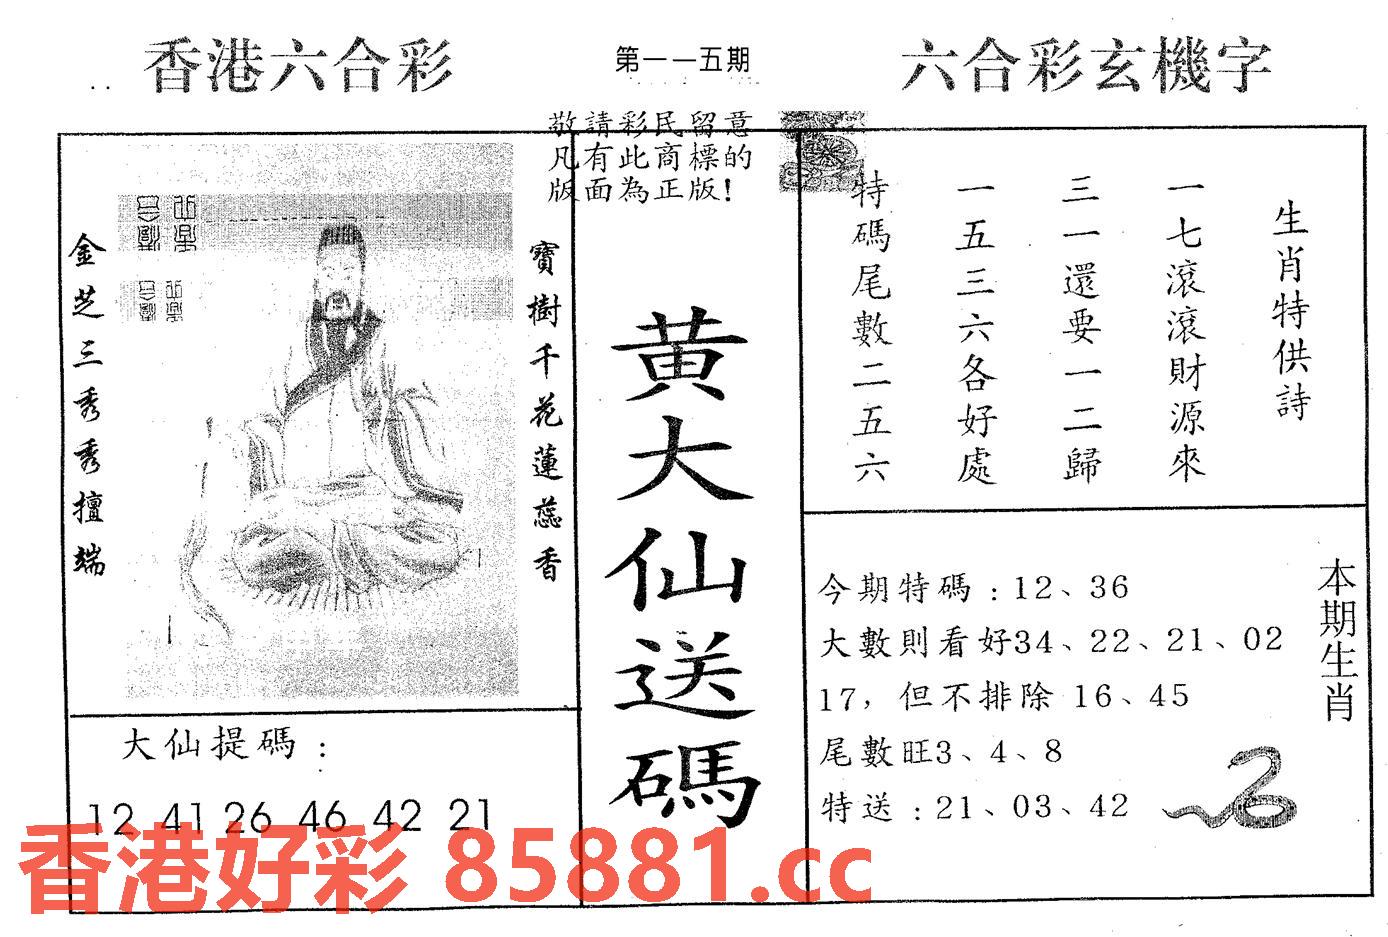 香港六合彩
第一一五期
六合彩玄機字
敬請彩民留意
凡有此商標的
版面為正版!
寶樹千花蓮蕊香
金芝三秀秀擅端
黄大仙送碼
生肖特供詩
一七滾滾財源來
三一還要一二歸
一五三六各好處
特碼尾數二五六
大仙提碼:
12 41 26 46 42 21
本期生肖
今期特碼:12、36
大數則看好34、22、21、02
17,但不排除 16、45
尾數旺3、4、8
特送:21、03、42
香港好彩 85881.cc